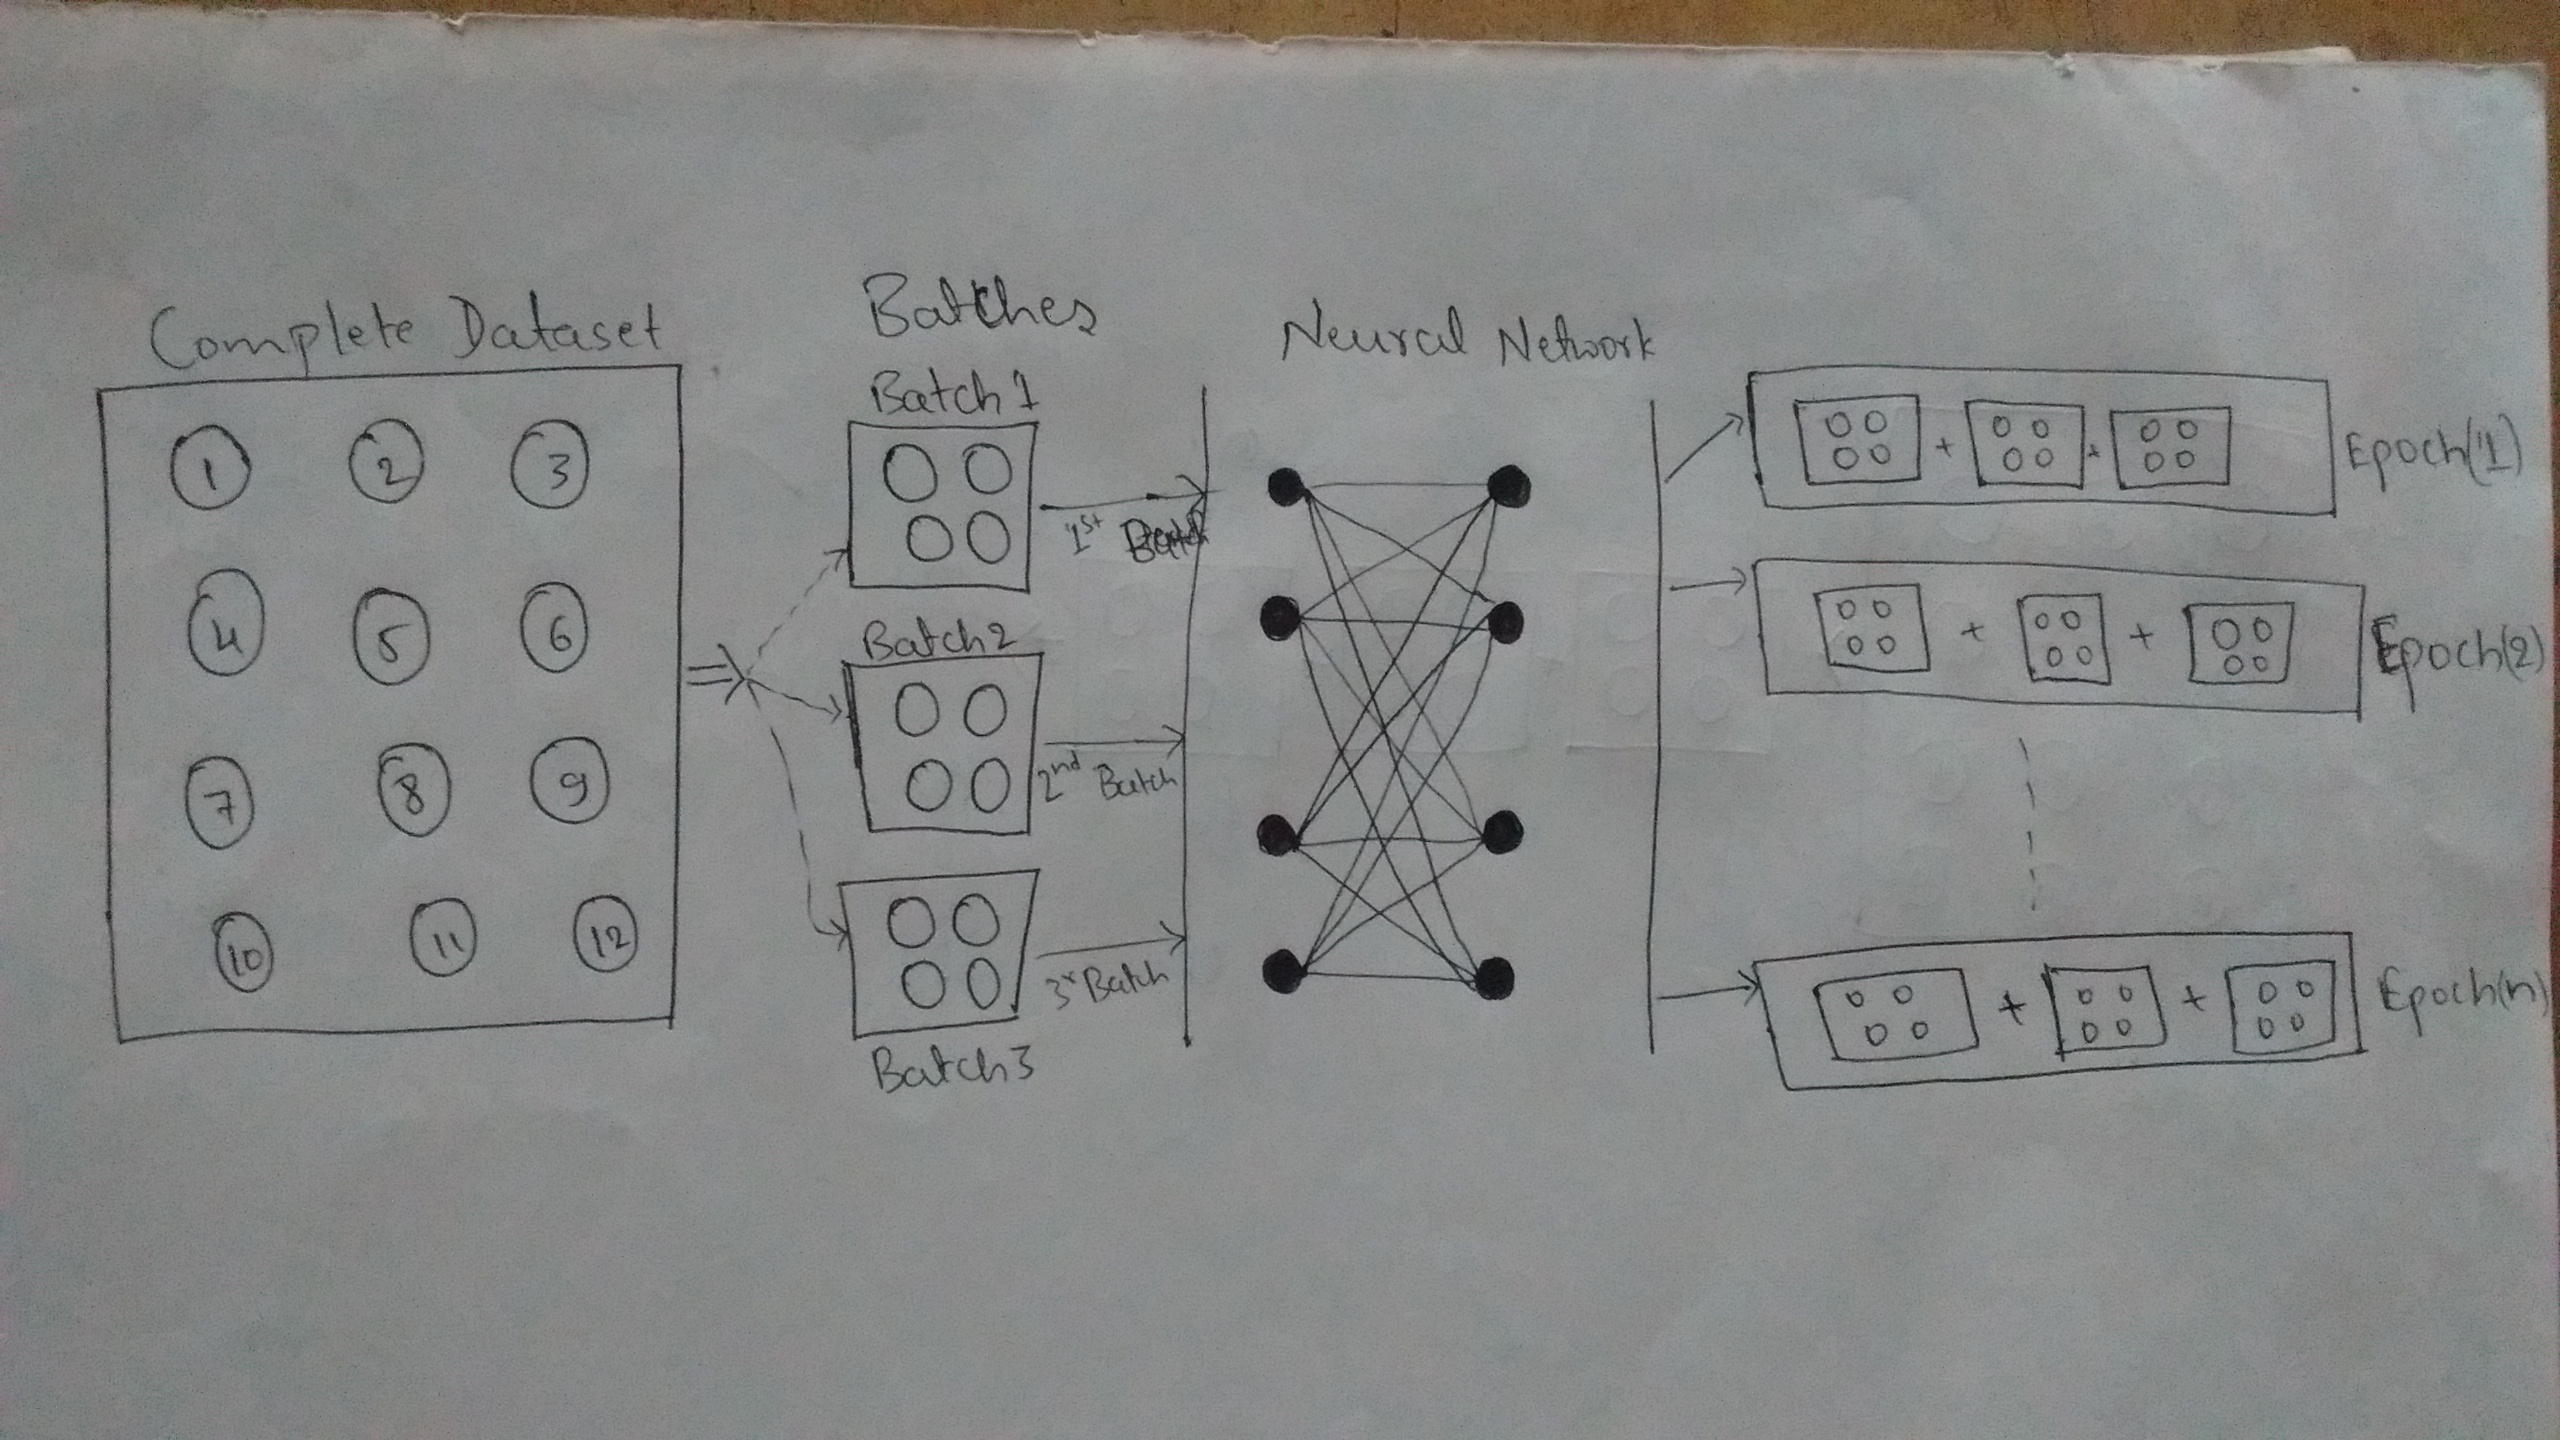 Complete Dataset
1 2 3
4 5 6
7 8 9
10 11 12
Batches
Batch 1
Batch 2
Batch 3
1st Batch
2nd Batch
3r Batch
Neural Network
+ +
Epoch(1)
+ +
Epoch(2)
+ +
Epoch(n)